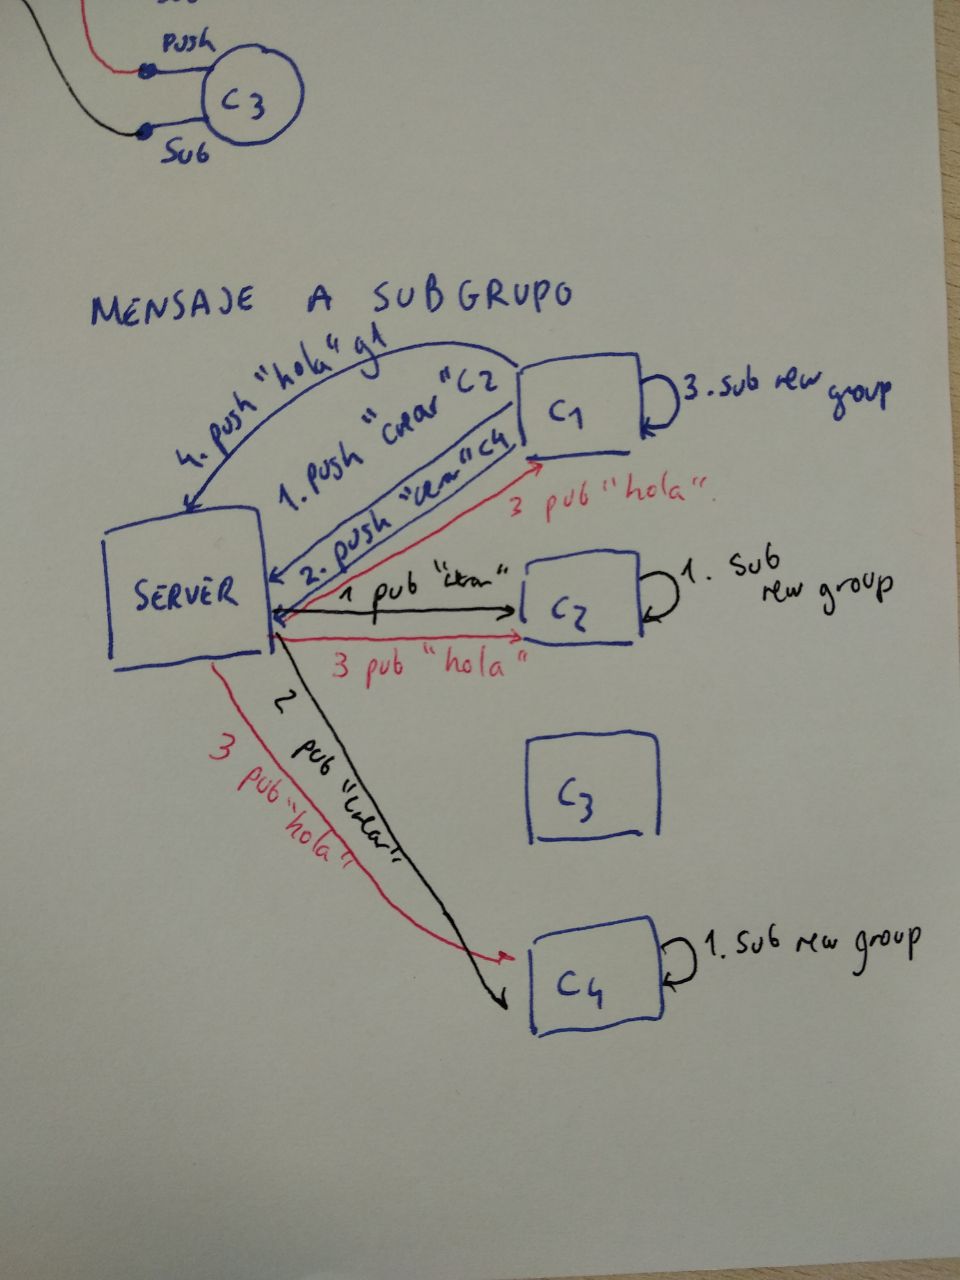 Push
C3
Sub
MENSAJE A SUBGRUPO
4. push "hola" g1
1. push "crear" C2
2. push "crear" C4
C1
3. sub new
group
3 pub "hola".
SERVER
1 pub "crear"
C2
1. Sub
new group
3 pub "hola"
2 pub "crear"
3 pub "hola"
C3
C4
1. Sub new group